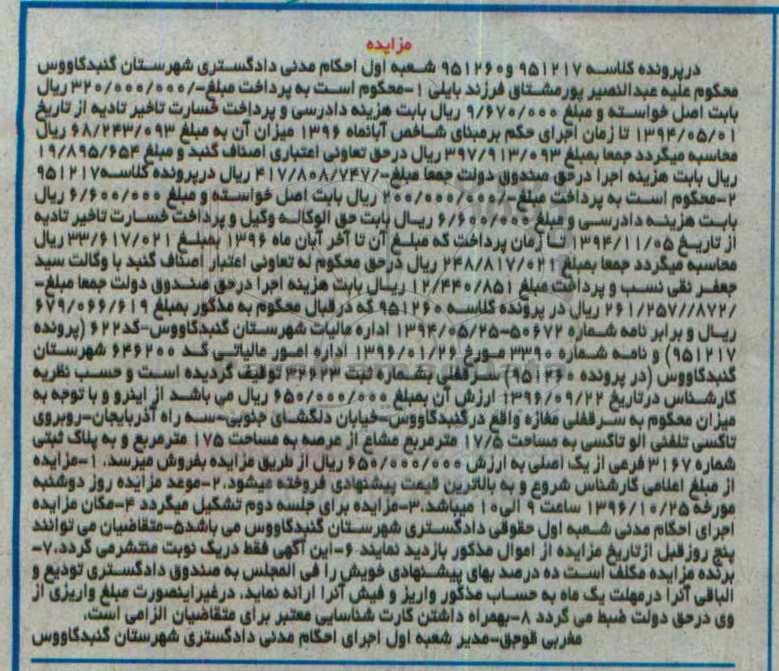 مزایده
درپرونده کلاسه ۹۵۱۲۱۷ و۹۵۱۲۶۰ شعبه اول احکام مدنی دادگستری شهرستان گنبدکاووس
محکوم علیه عبدالنصیر پورمشتاق فرزند بایلی ۱-محکوم است به پرداخت مبلغ-/۳۲۰/۰۰۰/۰۰۰ ریال
بابت اصل خواسته و مبلغ ۹/۶۷۰/۰۰۰ ریال بابت هزینه دادرسی و پرداخت خسارت تاخیر تادیه از تاریخ
۱۳۹۴/۰۵/۰۱ تا زمان اجرای حکم برمبنای شاخص آبانماه ۱۳۹۶ میزان آن به مبلغ ۶۸/۲۴۳/۰۹۳ ریال
محاسبه میگردد جمعا بمبلغ ۳۹۷/۹۱۳/۰۹۳ ریال درحق تعاونی اعتباری اصناف گنبد و مبلغ ۱۹/۸۹۵/۶۵۴
ریال بابت هزینه اجرا درحق صندوق دولت جمعا مبلغ-/۴۱۷/۸۰۸/۷۴۷ ریال درپرونده کلاسه۹۵۱۲۱۷
۲-محکوم است به پرداخت مبلغ-/۲۰۰/۰۰۰/۰۰۰ ریال بابت اصل خواسته و مبلغ ۶/۶۰۰/۰۰۰ ریال
بابت هزینه دادرسی و مبلغ ۶/۶۰۰/۰۰۰ ریال بابت حق الوکاله وکیل و پرداخت خسارت تاخیر تادیه
از تاریخ ۱۳۹۴/۱۱/۰۵ تا زمان پرداخت که مبلغ آن تا آخر آبان ماه ۱۳۹۶ بمبلغ ۳۳/۶۱۷/۰۲۱ ریال
محاسبه میگردد جمعا بمبلغ ۲۴۸/۸۱۷/۰۲۱ ریال درحق محکوم له تعاونی اعتبار اصناف گنبد با وکالت سید
جعفر نقی نسب و پرداخت مبلغ ۱۲/۴۴۰/۸۵۱ ریال بابت هزینه اجرا درحق صندوق دولت جمعا مبلغ-
/۲۶۱/۲۵۷//۸۷۲ ریال در پرونده کلاسه ۹۵۱۲۶۰ که درقبال محکوم به مذکور بمبلغ ۶۷۹/۰۶۶/۶۱۹
ریال و برابر نامه شماره ۵۰۶۷۲-۱۳۹۴/۰۵/۲۵ اداره مالیات شهرستان گنبدکاووس-کد۶۲۲ (پرونده
۹۵۱۲۱۷) و نامه شماره ۳۳۹۰ مورخ ۱۳۹۶/۰۱/۲۶ اداره امور مالیاتی کد ۶۴۶۲۰۰ شهرستان
گنبدکاووس (در پرونده ۹۵۱۲۶۰) سرقفلی بشماره ثبت ۴۲۶۲۳ توقیف گردیده است و حسب نظریه
کارشناس درتاریخ ۱۳۹۶/۰۹/۲۲ ارزش آن بمبلغ ۶۵۰/۰۰۰/۰۰۰ ریال می باشد از اینرو و با توجه به
میزان محکوم به سرقفلی مغازه واقع درگنبدکاووس-خیابان دلگشای جنوبی-سه راه آذربایجان-روبروی
تاکسی تلفنی الو تاکسی به مساحت ۱۷/۵ مترمربع مشاع از عرصه به مساحت ۱۷۵ مترمربع و به پلاک ثبتی
شماره ۳۱۶۷ فرعی از یک اصلی به ارزش ۶۵۰/۰۰۰/۰۰۰ ریال از طریق مزایده بفروش میرسد. ۱-مزایده
از مبلغ اعلامی کارشناس شروع و به بالاترین قیمت پیشنهادی فروخته میشود.۲-موعد مزایده روز دوشنبه
مورخه ۱۳۹۶/۱۰/۲۵ ساعت ۹ الی۱۰ میباشد.۳-مزایده برای جلسه دوم تشکیل میگردد ۴-مکان مزایده
اجرای احکام مدنی شعبه اول حقوقی دادگستری شهرستان گنبدکاووس می باشد۵-متقاضیان می توانند
پنج روزقبل ازتاریخ مزایده از اموال مذکور بازدید نمایند ۶-این آگهی فقط دریک نوبت منتشرمی گردد.۷-
برنده مزایده مکلف است ده درصد بهای پیشنهادی خویش را فی المجلس به صندوق دادگستری تودیع و
الباقی آنرا درمهلت یک ماه به حساب مذکور واریز و فیش آنرا ارائه نماید. درغیراینصورت مبلغ واریزی از
وی درحق دولت ضبط می گردد ۸-بهمراه داشتن کارت شناسایی معتبر برای متقاضیان الزامی است.
مغربی قوجق-مدیر شعبه اول اجرای احکام مدنی دادگستری شهرستان گنبدکاووس